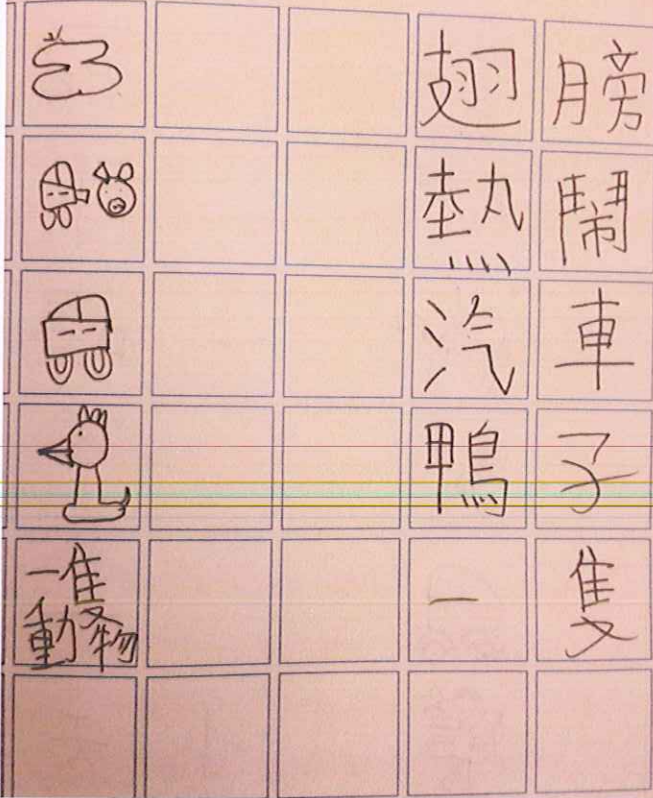 翅膀
熱鬧
汽車
鴨子
一隻動物 一隻